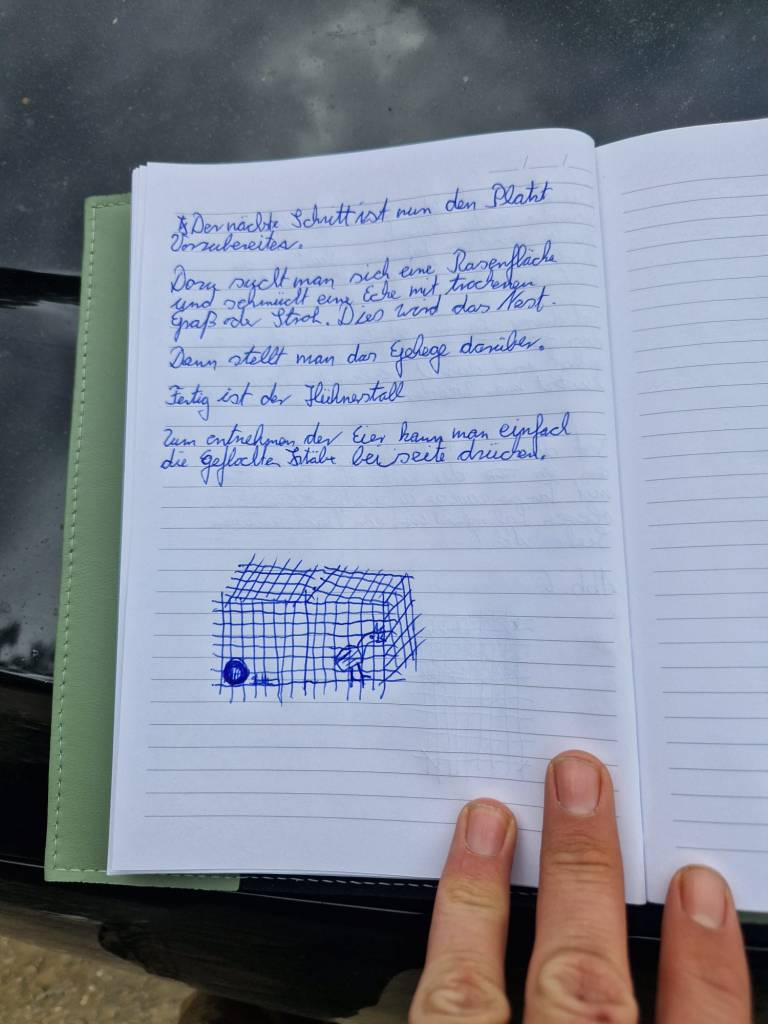 Der nächste Schritt ist nun den Platzt
Vorzubereiten.
Dazu sucht man sich eine Rasenfläche
und schmückt eine Ecke mit trockenen
Graß oder Stroh. Dies wird das Nest.
Dann stellt man das Gehege darüber.
Fertig ist der Hühnerstall
Zum entnehmen der Eier kann man einfach
die Geflochten Stäbe bei seite drücken.